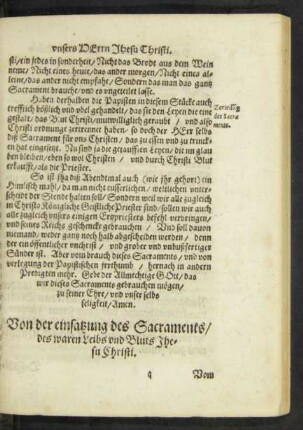 vnsers HErrn Jhesu Christi.
sti, ein jedes in sonderheit, Nicht das Brodt aus dem Wein
neme, Nicht eines heute, das ander morgen, Nicht eines al-
leine, das ander nicht empfahe, Sondern das man das gantz
Sacrament brauche, vnd es vngeteilet lasse.
Haben derhalben die Papisten in diesem Stücke auch
trefflich böslich vnd vbel gehandelt, das sie den Leyen die eine
gestalt, das Blut Christi, mutwilliglich geraubt, vnd also
Christi ordnunge zertrennet haben, so doch der HErr selbs
dis Sacrament für vns Christen, das zu essen vnd zu trinck-
en hat eingesetzt. Nu sind ja die getaufften Leyen, die im glau
ben bleiben, eben so wol Christen, vnd durch Christi Blut
erkaufft, als die Priester.
So ist jha dis Abendmal auch (wie jhr gehört) ein
Himlisch mahl, da man nicht eusserlichen, weltlichen vnter-
scheidt der Stende halten soll, Sondern weil wir alle zugleich
in Christo Königliche Geistliche Priester sind, sollen wir auch
alle zugleich vnsers einigen Ertzpriesters befehl verbringen,
vnd seines Reichs geschencke gebrauchen, Vnd soll dauon
niemand, weder gantz noch halb abgescheiden werden, denn
der ein öffentlicher vnchrist, vnd grober vnd vnbusfertiger
Sünder ist. Aber vom brauch dieses Sacraments, vnd von
verlegung der Papistischen jrrthumb, hernach in andern
Predigten mehr. Gebe der Allmechtige GOtt, das
wir dieses Sacraments gebrauchen mögen,
zu seiner Ehre, vnd vnser selbs
seligkeit, Amen.
der Sacra
Von der einsatzung des Sacraments,
des waren Leibs vnd Bluts Jhe-
su Christi.
q
Vom